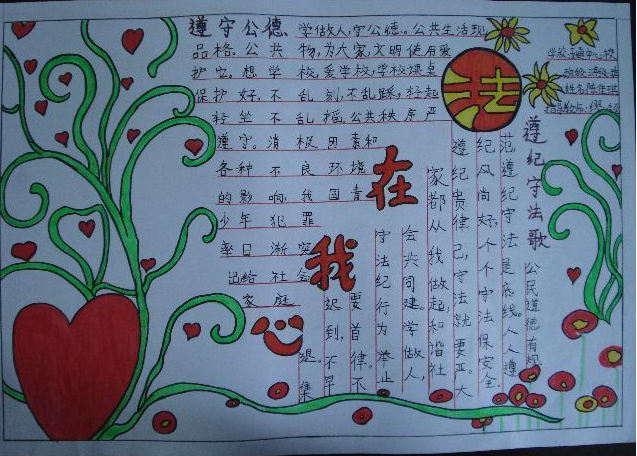 遵守公德、学做人,守公德。公共生活现
品格。公共物,为大家,文明使用爱
护它。想学校,爱学校,学校课桌
保护好。不乱刻,不乱踩,轻起
轻坐不乱摇。公共秩序严
遵守。消极因素和
各种不良环境
的影响,我国青
少年犯罪
率日渐突
出给社会
家庭
法
在
我
心
遵纪守法歌
公民道德有规
范,遵纪守法是底线。人人遵
纪风尚好,个个守法保安全。
遵纪贵律己,守法就要严。大
家都从我做起,和谐社
会共同建。学做人,
守法纪,行为举止
要首律。不
迟到,不早
退。集